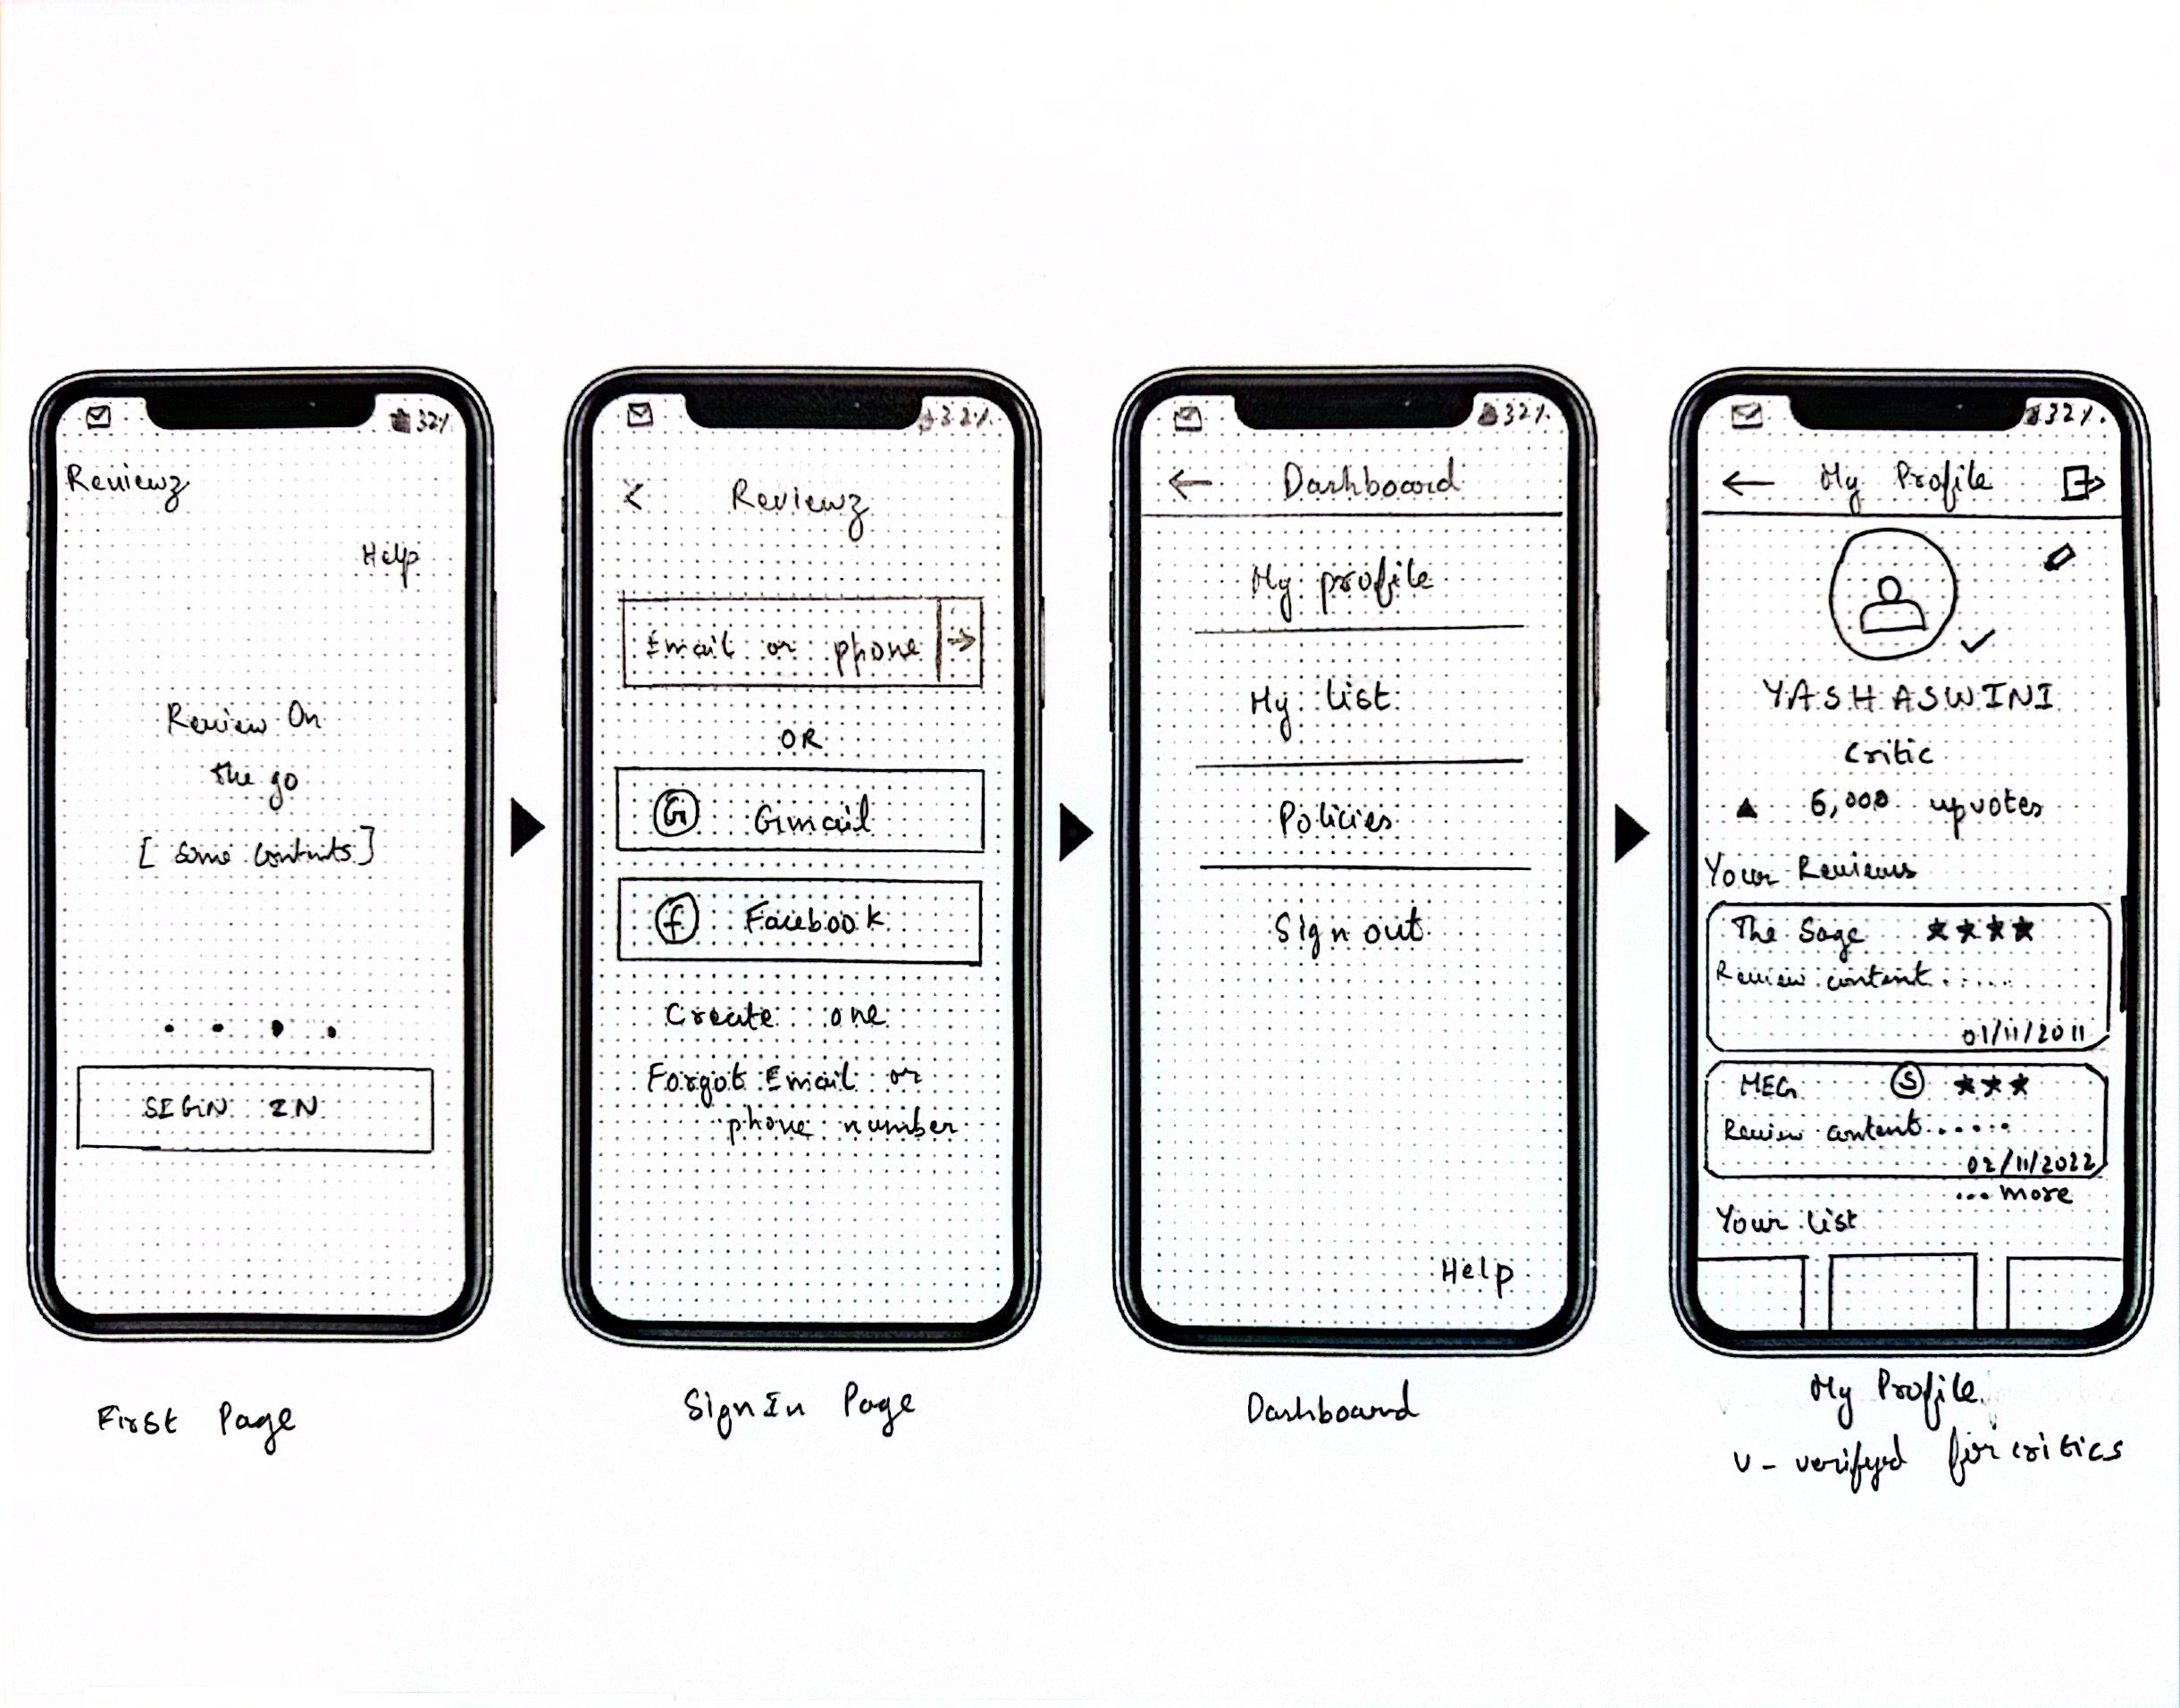 32%
Reviewz
Help
Review On
the go
[ Some Contents ]
SIGN IN
First Page
32%
< Reviewz
Email or phone →
OR
G Gmail
f Facebook
Create one
Forgot Email or
phone number
SignIn Page
32%
← Dashboard
My profile
My list
Policies
Sign out
Help
Dashboard
32%.
← My Profile
YASHASWINI
Critic
▲ 6,000 upvotes
Your Reviews
The Sage ★★★★
Review content.....
01/11/2011
MEG S ★★★
Review content.....
02/11/2022
... more
Your list
My Profile
v - verifyed for critics